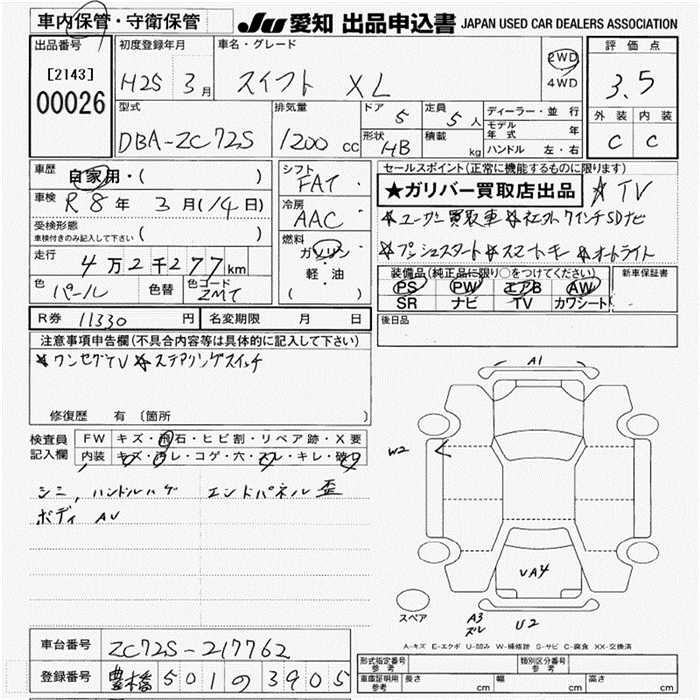 車内保管・守衛保管
JU 愛知 出品申込書 JAPAN USED CAR DEALERS ASSOCIATION
出品番号 初度登録年月 車名・グレード 評価点
[2143] H25 3月 スイフト XL 2WD 4WD 3.5
00026 型式 排気量 ドア 5 定員 5人 ディーラー・並行 外装 内装
DBA-ZC72S 1200cc 形状 HB 積載 kg モデル年式 年 C C
ハンドル 左・右
車歴 自家用・( ) シフト FAT セールスポイント(正常に機能するものに限ります)
車検 R8年 3月(14日) 冷房 AAC ★ガリバー買取店出品 ☆TV
受検形態 ( ) ☆ユーザー買取車 ☆社外7インチSDナビ
車検付きのみ記入して下さい 燃料 ガソリン・軽油 ( ) ☆プッシュスタート ☆スマートキー ☆オートライト
走行 4万2千277km 装備品(純正品に限り○をつけてください) 新車保証書
色 パール 色替 色コード ZMT PS PW エアB AW
SR ナビ TV カワシート
R券 11330円 名変期限 月 日 後日品
注意事項申告欄(不具合内容等は具体的に記入して下さい)
☆ワンセグTV ☆ステアリングスイッチ
修復歴 有 〔箇所 〕
検査員記入欄 FW キズ・飛石・ヒビ割・リペア跡・X要
内装 キズ・汚レ・コゲ・穴・スレ・キレ・破レ
シミ, ハンドルハゲ エンドパネル歪
ボディ AU
A1
W2
VA4
スペア
A3 ズレ U2
A-キズ E-エクボ U-凹み W-補修跡 S-サビ C-腐食 XX-交換済
車台番号 ZC72S-217762
登録番号 豊橋 501 の 3905
形式指定番号 参考 類別区分番号 参考
車庫証明用 参考 長さ cm 幅 cm 高さ cm